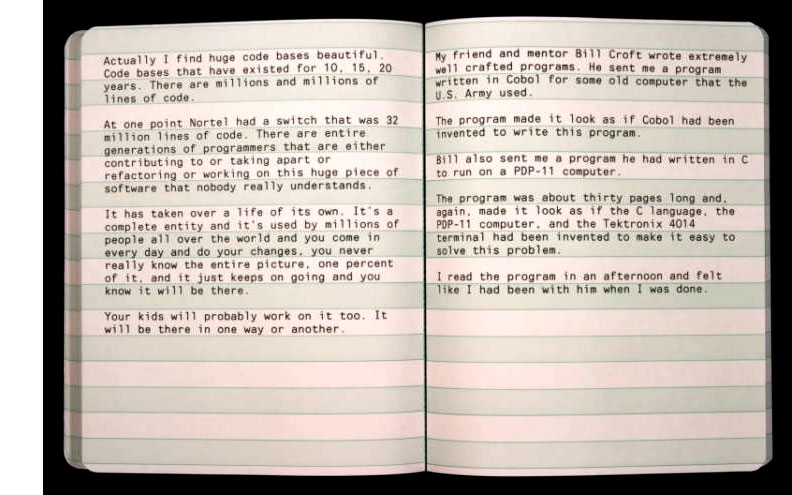 Actually I find huge code bases beautiful.
Code bases that have existed for 10, 15, 20
years. There are millions and millions of
lines of code.
At one point Nortel had a switch that was 32
million lines of code. There are entire
generations of programmers that are either
contributing to or taking apart or
refactoring or working on this huge piece of
software that nobody really understands.
It has taken over a life of its own. It's a
complete entity and it's used by millions of
people all over the world and you come in
every day and do your changes, you never
really know the entire picture, one percent
of it, and it just keeps on going and you
know it will be there.
Your kids will probably work on it too. It
will be there in one way or another.
My friend and mentor Bill Croft wrote extremely
well crafted programs. He sent me a program
written in Cobol for some old computer that the
U.S. Army used.
The program made it look as if Cobol had been
invented to write this program.
Bill also sent me a program he had written in C
to run on a PDP-11 computer.
The program was about thirty pages long and,
again, made it look as if the C language, the
PDP-11 computer, and the Tektronix 4014
terminal had been invented to make it easy to
solve this problem.
I read the program in an afternoon and felt
like I had been with him when I was done.